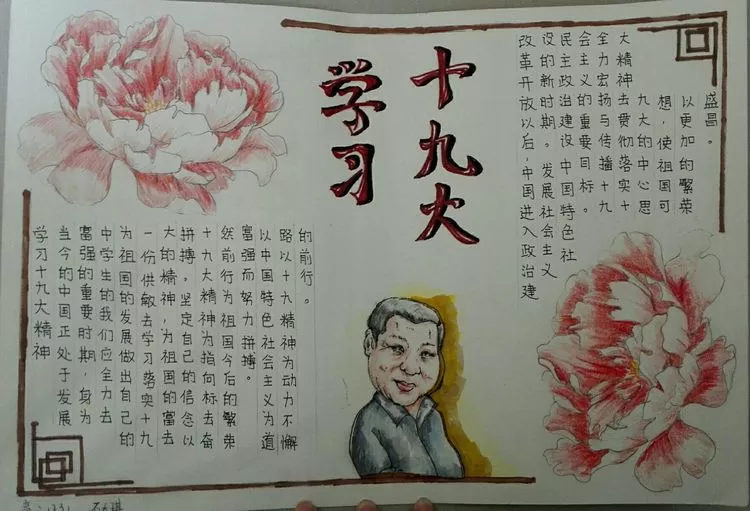 学习
十九大
学习十九大精神
当今的中国正处于发展
富强的重要时期，身为
中学生的我们应全力去
为祖国的发展做出自己的
一份供敏去学习落实十九
大的精神，为祖国的富去
拼搏，坚定自己的信念以
十九大精神为指向标去奋
然前行为祖国今后的繁荣
富强而努力拼搏。
以中国特色社会主义为道
路以十九精神为动力不懈
的前行。
改革开放以后，中国进入政治建
设的新时期。发展社会主义
民主政治建设中国特色社
会主义的重要目标。
全力宏扬与传播十九
大精神去贯彻落实十
九大的中心思
想，使祖国可
以更加的繁荣
盛昌。